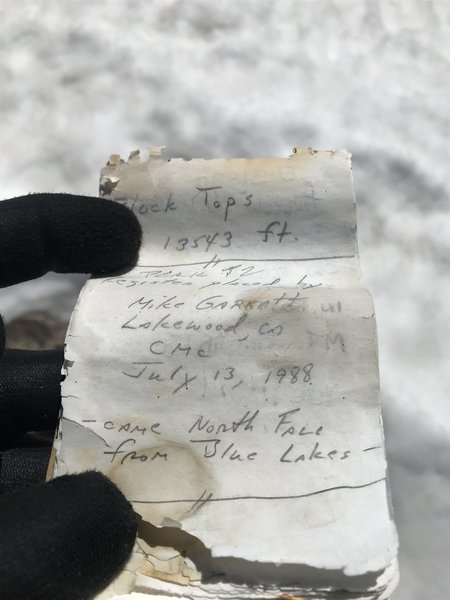 Block Tops
13543 ft.
PEAK #2
register placed by
Mike GARRATT
Lakewood, CO
CMC
July 13, 1988
- CAME North FACE
from Blue Lakes -